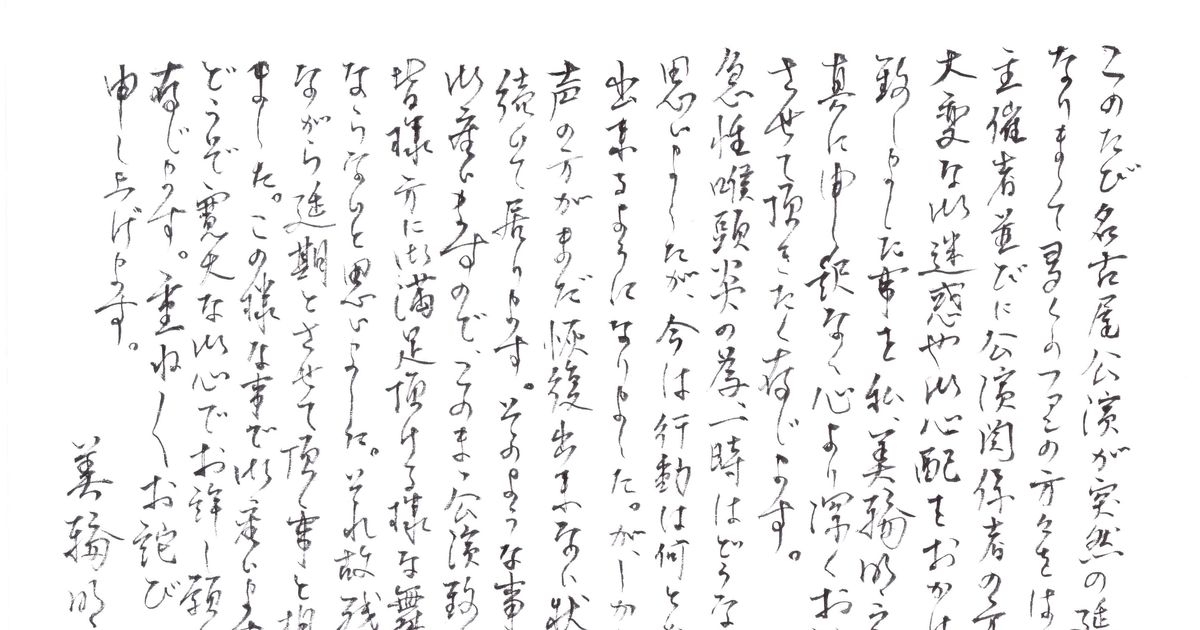 このたび名古屋公演が突然の延
なりまして多くのファンの方々をは
主催者並びに公演関係者の方
大変な御迷惑や御心配をおかけ
致しました事を私、美輪明宏
真に申し訳なく心より深くお
させて頂きたく存じます。
急性喉頭炎の為、一時はどうな
思いましたが、今は行動は何とか
出来るようになりました。が、しか
声の方がまだ恢復出来ない状
続いて居ります。そのような事
御座いますので、このまま公演致
皆様方に御満足頂ける様な舞
ならないと思いました。それ故残
ながら延期とさせて頂く事と相
ました。この様な事で御座います
どうぞ寛大な御心でお許し願
存じます。重ね〱お詫び
申し上げます。
美輪明